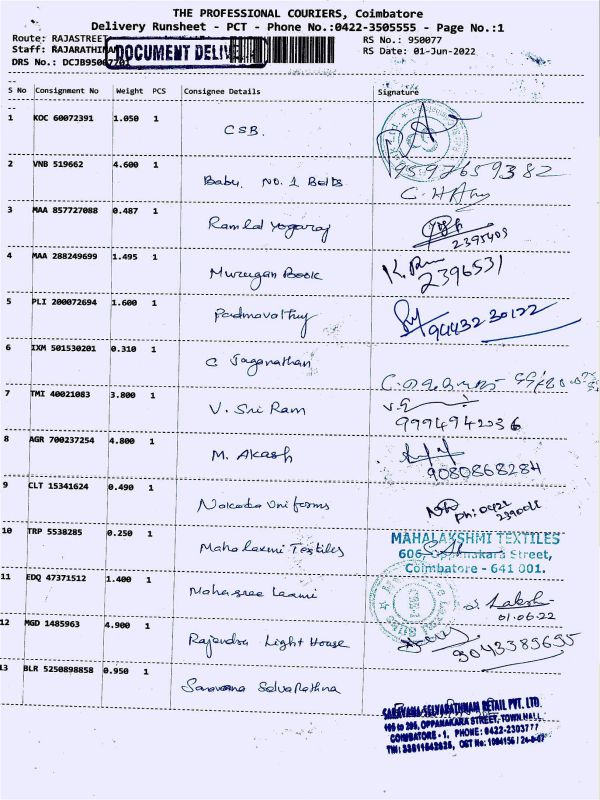 THE PROFESSIONAL COURIERS, Coimbatore
Delivery Runsheet - PCT - Phone No.:0422-3505555 - Page No.:1
Route: RAJASTREET
RS No.: 950077
Staff: RAJARATHINAM
DOCUMENT DELIVE
RS Date: 01-Jun-2022
DRS No.: DCJB95007701
S No Consignment No Weight PCS Consignee Details Signature
1 KOC 60072391 1.050 1 CSB.
2 VNB 519662 4.600 1 Baby. No. 1 Belts 9597659382
3 MAA 857727088 0.487 1 Ramlal Yogaraj 2395409
4 MAA 288249699 1.495 1 Murugan Book 2396531
5 PLI 200072694 1.600 1 Padmavathy 9443230122
6 IXM 501530201 0.310 1 C Jaganathan
7 TMI 40021083 3.800 1 V. Sri Ram 9994942036
8 AGR 700237254 4.800 1 M. Akash 9080868284
9 CLT 15341624 0.490 1 Nakoda Uniforms Ph: 0422
10 TRP 5538285 0.250 1 Mahalaxmi Textiles
MAHALAKSHMI TEXTILES
606, Oppanakara Street,
Coimbatore - 641 001.
11 EDQ 47371512 1.400 1 Mahasree Laxmi
01.06.22
12 MGD 1485963 4.900 1 Rajendra Light House 9043389655
13 BLR 5250898858 0.950 1 Saravana SelvaRathna
SARAVANA SELVARATHNAM RETAIL PVT. LTD.
OPPANAKARA STREET, TOWN HALL,
COIMBATORE - 1. PHONE: 0422-2303777